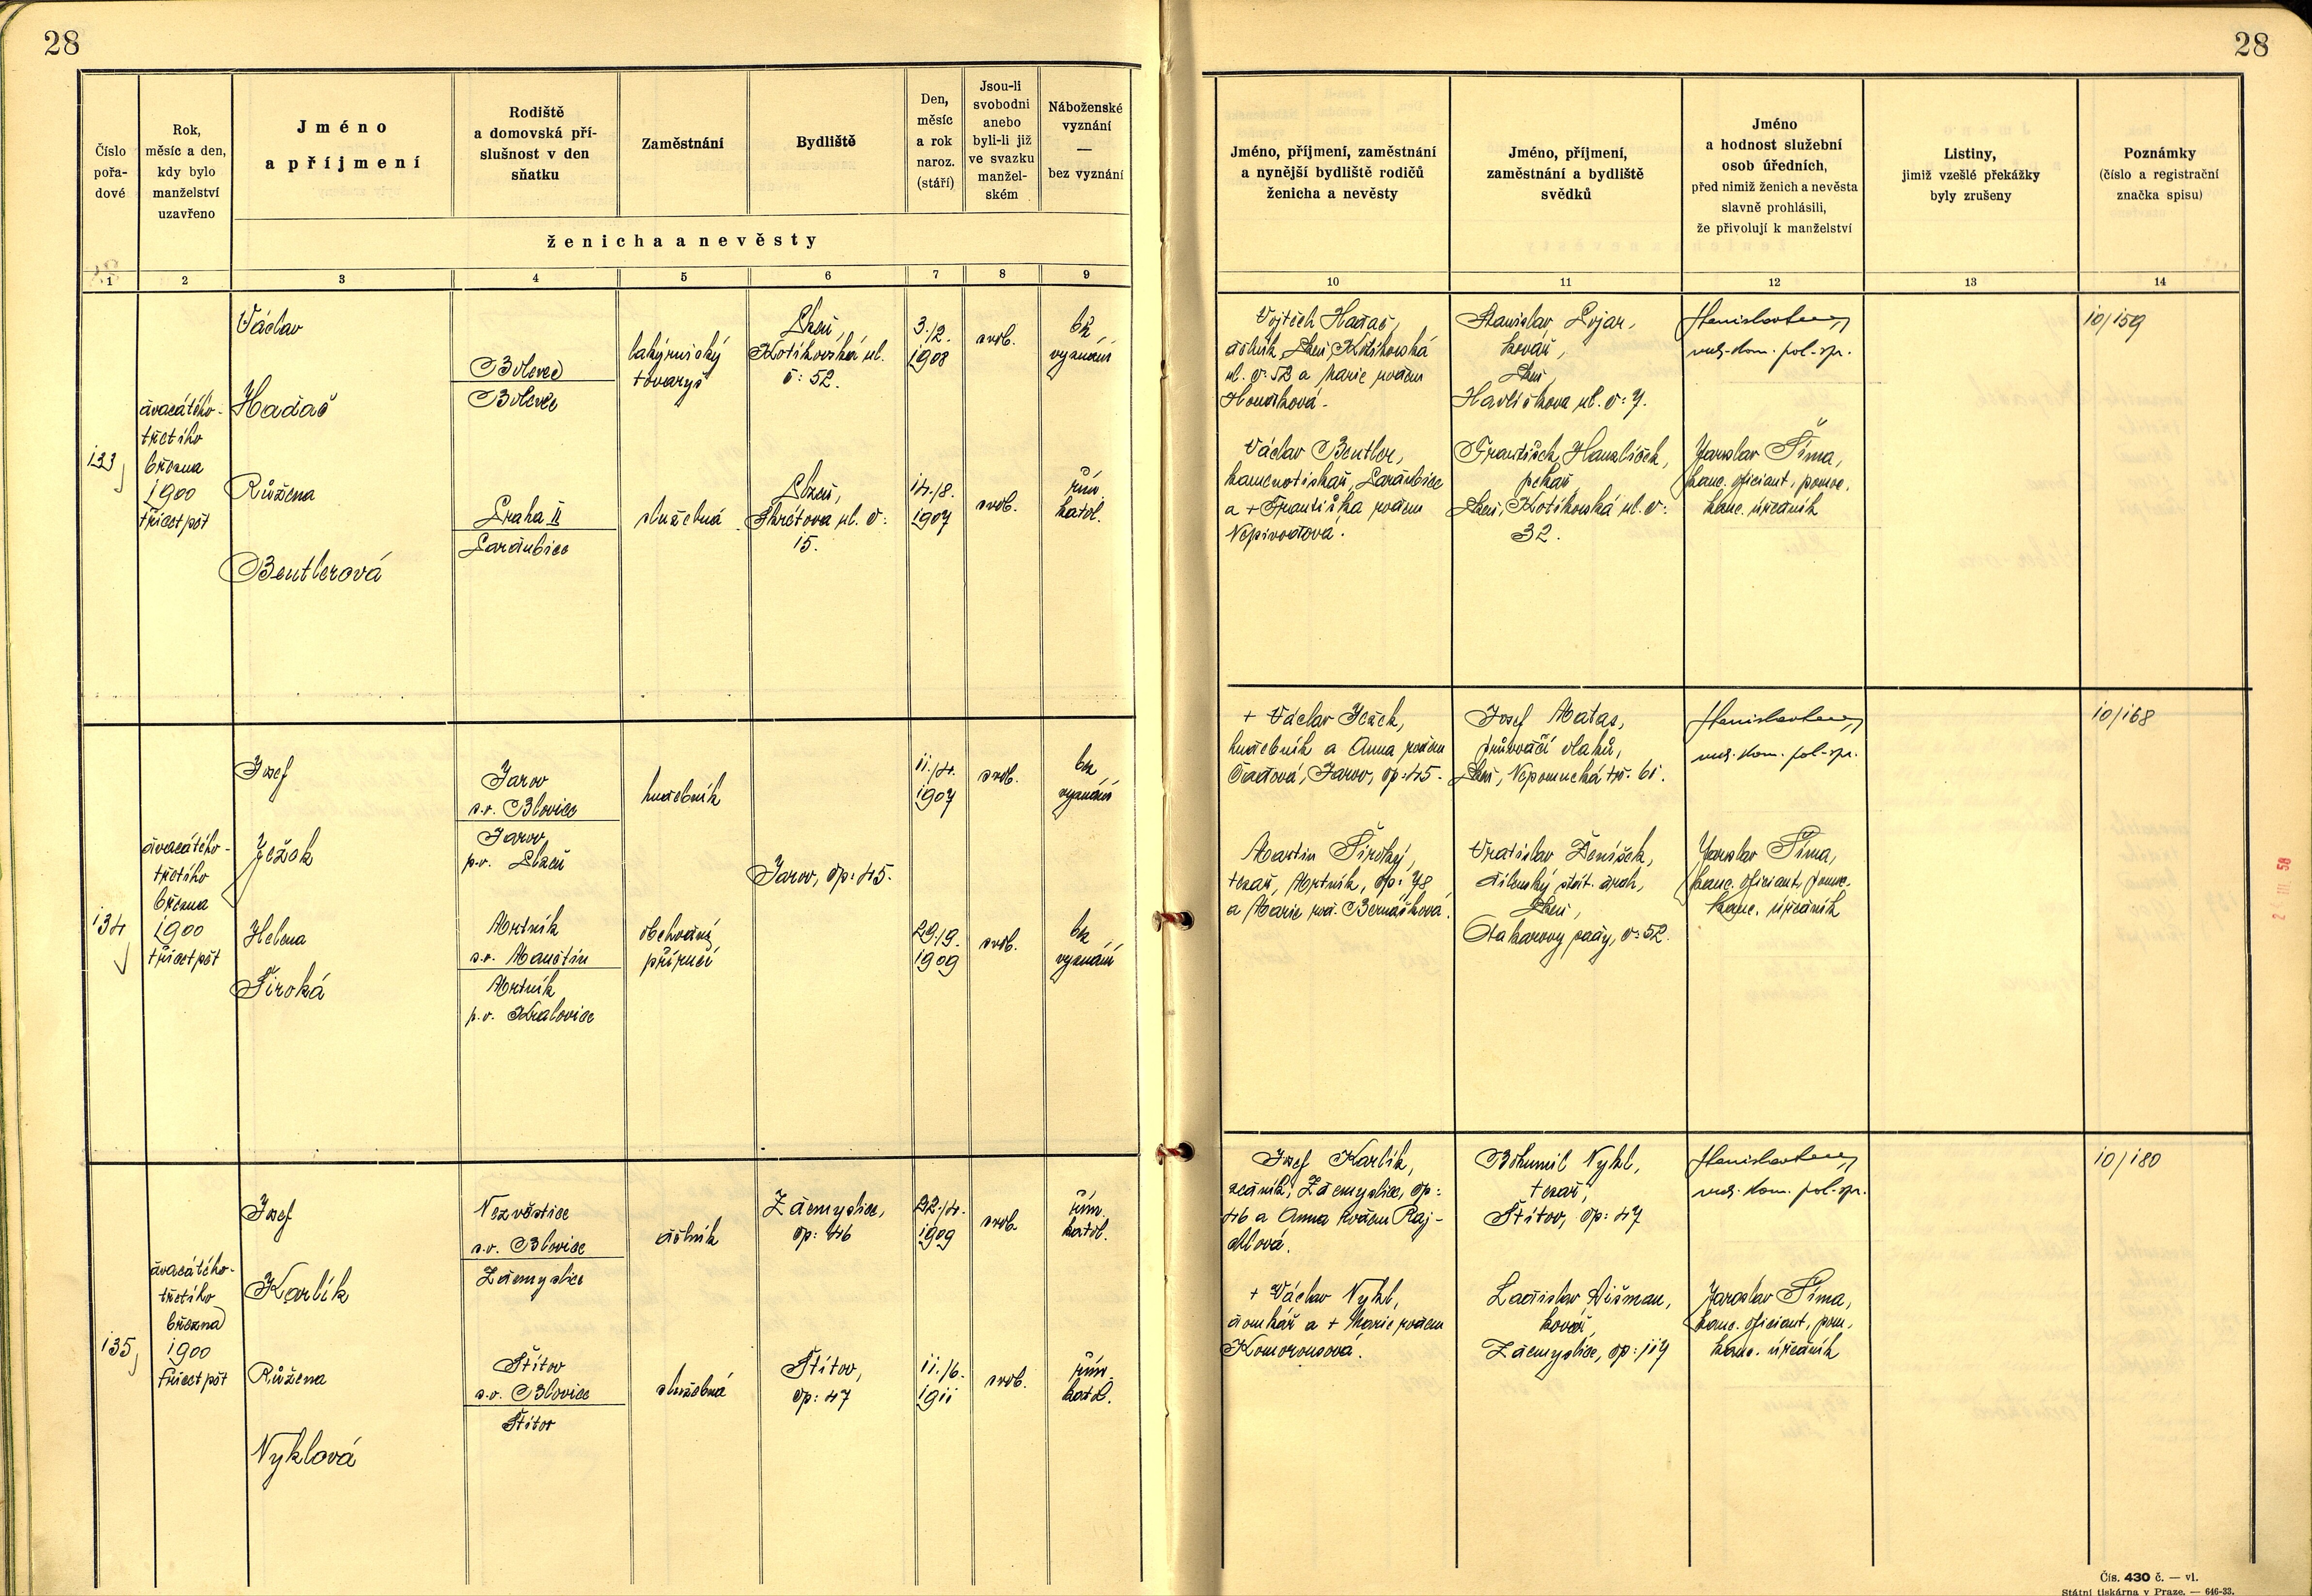 28
28
Číslo
pořa-
dové
Rok,
měsíc a den,
kdy bylo
manželství
uzavřeno
Jméno
a příjmení
Rodiště
a domovská pří-
slušnost v den
sňatku
Zaměstnání
Bydliště
Den,
měsíc
a rok
naroz.
(stáří)
Jsou-li
svobodni
anebo
byli-li již
ve svazku
manžel-
ském
Náboženské
vyznání
—
bez vyznání
ženicha a nevěsty
1 2 3 4 5 6 7 8 9
Jméno, příjmení, zaměstnání
a nynější bydliště rodičů
ženicha a nevěsty
Jméno, příjmení,
zaměstnání a bydliště
svědků
Jméno
a hodnost služební
osob úředních,
před nimiž ženich a nevěsta
slavně prohlásili,
že přivolují k manželství
Listiny,
jimiž vzešlé překážky
byly zrušeny
Poznámky
(číslo a registrační
značka spisu)
10 11 12 13 14
133
dvacátého-
třetího
března
1900
třicetpět
Václav
Hadač
Bolevec
Bolevec
lakýrnický
tovaryš
Plzeň,
Kotíkovská ul.
č: 52.
3./2.
1908
svob.
bez
vyznání
Růžena
Beutlerová
Praha II
Pardubice
služebná
Plzeň,
Škrétova ul. č:
15.
14./8.
1907
svob.
řím.
katol.
Vojtěch Hadač,
dělník, Plzeň, Kotíkovská
ul. č: 52 a Marie rodem
Václav Beutler,
Pardubice
a + Františka rodem
Nepivodová.
Stanislav Lojar,
kovář,
Plzeň,
Havlíčkova ul. č: 7.
František Hanzlíček,
pekař
Plzeň, Kotíkovská ul. č:
32.
rad. kom. pol. spr.
Jaroslav Šíma,
kanc. oficiant, pomoc.
kanc. úředník
10/159
134
dvacátého-
třetího
března
1900
třicetpět
Josef
Ježek
Jarov
s.o. Blovice
Jarov
p.o. Plzeň
hudebník
Jarov, čp: 45.
11./4.
1907
svob.
bez
vyznání
Helena
Široká
Mrtník
s.o. Manětín
Mrtník
p.o. Kralovice
obchodní
příručí
29./9.
1909
svob.
bez
vyznání
+ Václav Ježek,
hudebník a Anna rodem
Čadová, Jarov, čp: 45.
Martin Široký,
tesař, Mrtník, čp: 78
a Marie rod. Bernášková.
Josef Matas,
průvodčí vlaků,
Plzeň, Nepomucká tř. 61.
Vratislav Deníšek,
dílenský
Plzeň,
Otakarovy sady, č: 52.
rad. kom. pol. spr.
Jaroslav Šíma,
kanc. oficiant, pomoc.
kanc. úředník
10/168
135
dvacátého-
třetího
března
1900
třicetpět
Josef
Karlík
Nezvěstice
s.o. Blovice
Zdemyslice
dělník
Zdemyslice,
čp: 46
22./4.
1909
svob.
řím.
katol.
Růžena
Nyklová
Štítov
s.o. Blovice
Štítov
služebná
Štítov,
čp: 47
11./6.
1911
svob.
řím.
katol.
Josef Karlík,
zedník, Zdemyslice, čp:
46 a Anna rodem Raj-
dlová.
+ Václav Nykl,
domkář a + Marie rodem
Komorousová.
Bohumil Nykl,
tesař,
Štítov, čp: 47
Ladislav Dišman,
kovář,
Zdemyslice, čp: 117
rad. kom. pol. spr.
Jaroslav Šíma,
kanc. oficiant, pom.
kanc. úředník
10/180
2 III 58
Čís. 430 č. — vl.
Státní tiskárna v Praze. — 646-33.